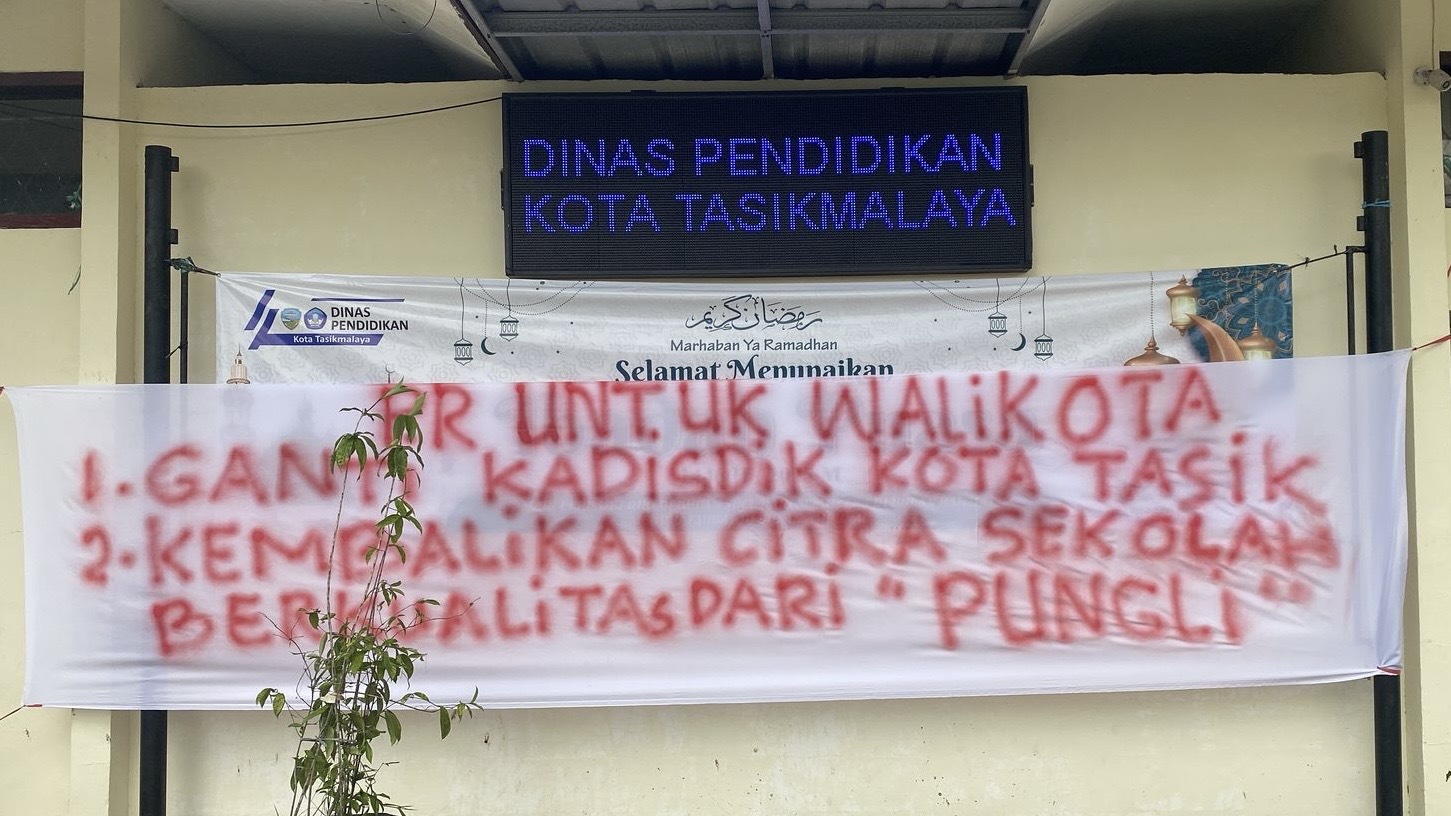 DINAS PENDIDIKAN
KOTA TASIKMALAYA
DINAS
PENDIDIKAN
Kota Tasikmalaya
رمضان كريم
Marhaban Ya Ramadhan
Selamat Menunaikan
PR UNTUK WALiKOTA
1. GANTi KADISDiK KOTA TASiK
2. KEMBALiKAN CiTRA SEKOLAH
BERKUALiTAS DARi "PUNGLi"